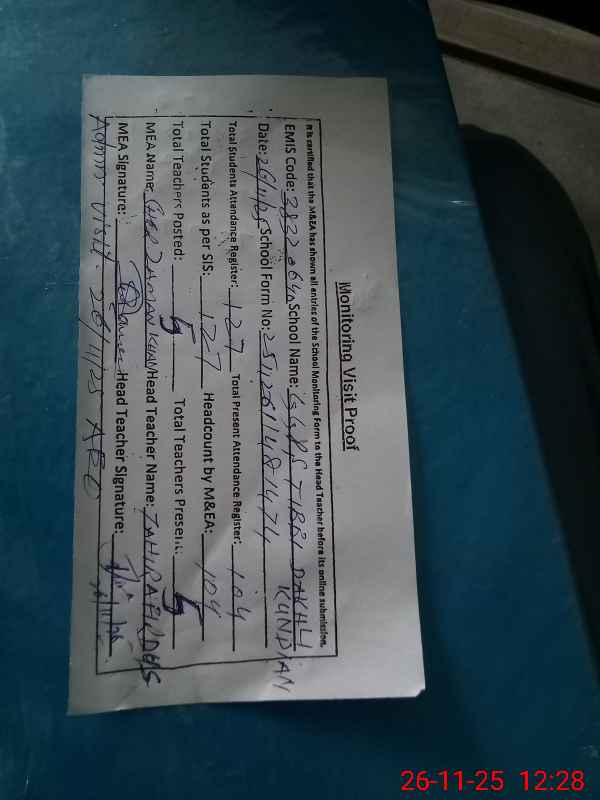 Monitoring Visit Proof
It is certified that the M&EA has shown all entries of the School Monitoring Form to the Head Teacher before its online submission.
EMIS Code: School Name: GGPS TIBBI DAKHLI KUNDIAN
Date: 26/11/25 School Form No:
Total Students Attendance Register: 127 Total Present Attendance Register: 104
Total Students as per SIS: 127 Headcount by M&EA: 104
Total Teachers Posted: 5 Total Teachers Present: 5
MEA Name: ZAMAN KHAN Head Teacher Name: TAHIRA FIRDOUS
MEA Signature: Head Teacher Signature:
Admn Visit 26/11/25
26-11-25 12:28